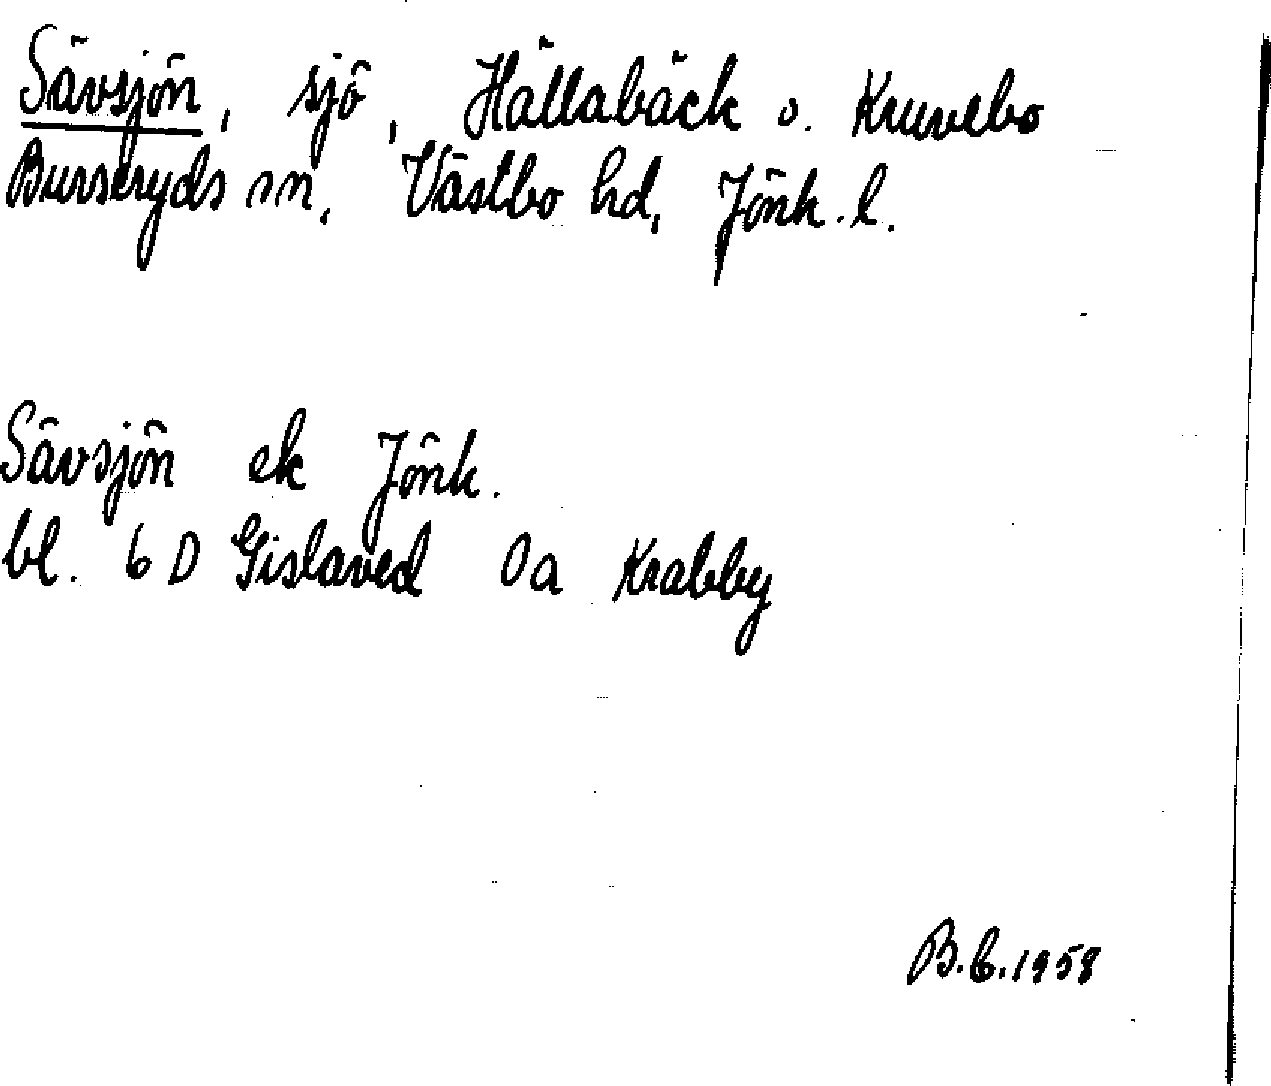 Sävsjön, sjö, Hällabäck o. Kruvebo
Burseryds sn, Västbo hd, Jönk.l.
Sävsjön ek Jönk.
bl. 6 D Gislaved 0a Krabby
B.b.1958